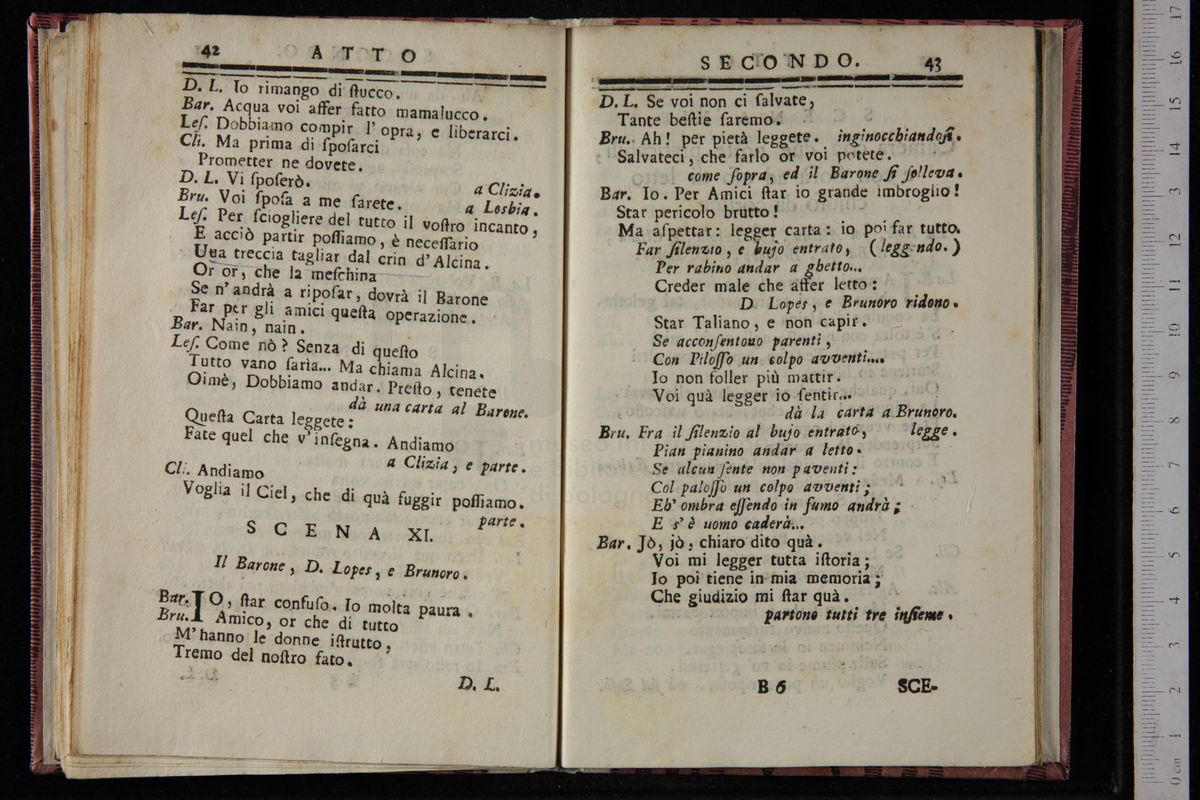 42 ATTO
D. L. Io rimango di ſtucco.
Bar. Acqua voi aſſer fatto mamalucco.
Leſ. Dobbiamo compir l' opra, e liberarci.
Cli. Ma prima di ſpoſarci
Prometter ne dovete.
D. L. Vi ſpoſerò. a Clizia.
Bru. Voi ſpoſa a me ſarete. a Lesbia.
Leſ. Per ſciogliere del tutto il voſtro incanto,
E acciò partir poſſiamo, è neceſſario
Una treccia tagliar dal crin d' Alcina.
Or or, che la meſchina
Se n' andrà a ripoſar, dovrà il Barone
Far per gli amici queſta operazione.
Bar. Nain, nain.
Leſ. Come nò? Senza di queſto
Tutto vano ſarìa... Ma chiama Alcina.
Oimè, Dobbiamo andar. Preſto, tenete
dà una carta al Barone.
Queſta Carta leggete:
Fate quel che v' inſegna. Andiamo
a Clizia, e parte.
Cli. Andiamo
Voglia il Ciel, che di quà fuggir poſſiamo.
parte.
SCENA XI.
Il Barone, D. Lopes, e Brunoro.
Bar. IO, ſtar confuſo. Io molta paura.
Bru. Amico, or che di tutto
M' hanno le donne iſtrutto,
Tremo del noſtro fato.
D. L.
SECONDO. 43
D. L. Se voi non ci ſalvate,
Tante beſtie faremo.
Bru. Ah! per pietà leggete. inginocchiandoſi.
Salvateci, che farlo or voi potete.
come ſopra, ed il Barone ſi ſolleva.
Bar. Io. Per Amici ſtar io grande imbroglio!
Star pericolo brutto!
Ma aſpettar: legger carta: io poi far tutto.
Far ſilenzio, e bujo entrato, (leggendo.)
Per rabino andar a ghetto...
Creder male che aſſer letto:
D. Lopes, e Brunoro ridono.
Star Taliano, e non capir.
Se acconſentono parenti,
Con Piloſſo un colpo avventi....
Io non foller più mattir.
Voi quà legger io ſentir...
dà la carta a Brunoro.
Bru. Fra il ſilenzio al bujo entrato, legge.
Pian pianino andar a letto.
Se alcun ſente non paventi:
Col paloſſo un colpo avventi;
Eb' ombra eſſendo in fumo andrà;
E s' è uomo caderà...
Bar. Jò, jò, chiaro dito quà.
Voi mi legger tutta iſtoria;
Io poi tiene in mia memoria;
Che giudizio mi ſtar quà.
partono tutti tre inſieme.
B 6 SCE-